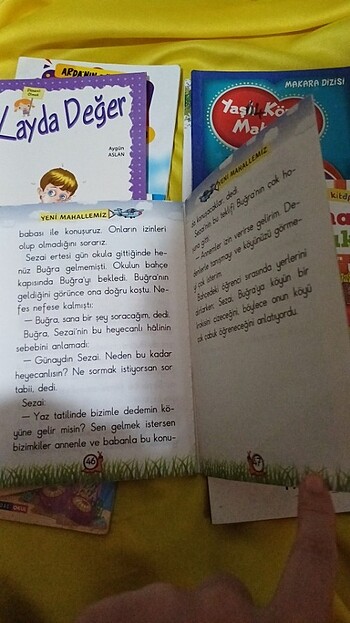 ARDA'NIN
MAKARA DİZİSİ
Layda Değer
Aygün
ASLAN
YENİ MAHALLEMİZ
babası ile konuşuruz. Onların izinleri
olup olmadığını sorarız.
Sezai ertesi gün okula gittiğinde he-
nüz Buğra gelmemişti. Okulun bahçe
kapısında Buğra'yı bekledi. Buğra'nın
geldiğini görünce ona doğru koştu. Ne-
fes nefese kalmıştı:
— Buğra, sana bir şey soracağım, dedi.
Buğra, Sezai'nin bu heyecanlı hâlinin
sebebini anlamadı:
— Günaydın Sezai. Neden bu kadar
heyecanlısın? Ne sormak istiyorsan sor
tabii, dedi.
Sezai:
— Yaz tatilinde bizimle dedemin kö-
yüne gelir misin? Sen gelmek istersen
bizimkiler annenle ve babanla bu konu-
46
YENİ MAHALLEMİZ
da konuşacaklar, dedi.
Sezai'nin bu teklifi Buğra'nın çok ho-
şuna gitti.
— Annemler izin verirse gelirim. De-
denlerle tanışmayı ve köyünüzü görme-
yi çok isterim.
Bahçedeki öğrenci sırasında yerlerini
alırlarken, Sezai, Buğra'ya köyün bir
krokisini çizeceğini, böylece onun köyü
çok çabuk öğreneceğini anlatıyordu.